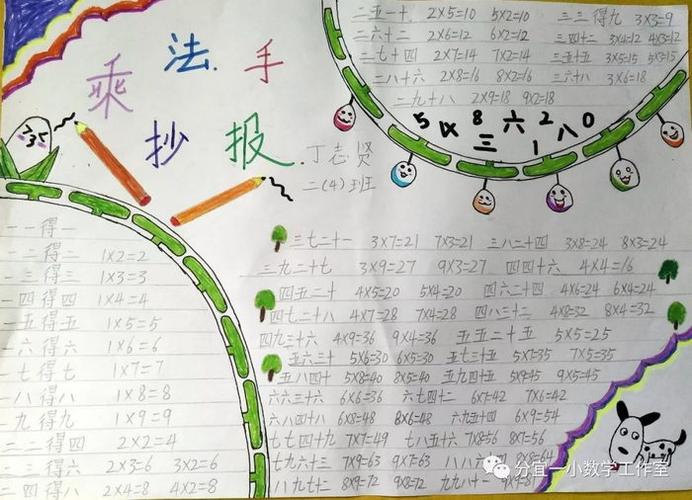 乘法手
抄报
丁志贤
二(4)班
二五一十 2×5=10 5×2=10 三三得九 3×3=9
二六十二 2×6=12 6×2=12 三四十二 3×4=12 4×3=12
二七十四 2×7=14 7×2=14 三五十五 3×5=15 5×3=15
二八十六 2×8=16 8×2=16 三六十八 3×6=18
二九十八 2×9=18 9×2=18
一一得一
一二得二 1×2=2
一三得三 1×3=3
一四得四 1×4=4
一五得五 1×5=5
一六得六 1×6=6
一七得七 1×7=7
一八得八 1×8=8
一九得九 1×9=9
二二得四 2×2=4
二三得六 2×3=6 3×2=6
二四得八 2×4=8 4×2=8
三七二十一 3×7=21 7×3=21 三八二十四 3×8=24 8×3=24
三九二十七 3×9=27 9×3=27 四四十六 4×4=16
四五二十 4×5=20 5×4=20 四六二十四 4×6=24 6×4=24
四七二十八 4×7=28 7×4=28 四八三十二 4×8=32 8×4=32
四九三十六 4×9=36 9×4=36 五五二十五 5×5=25
五六三十 5×6=30 6×5=30 五七三十五 5×7=35 7×5=35
五八四十 5×8=40 8×5=40 五九四十五 5×9=45 9×5=45
六六三十六 6×6=36 六七四十二 6×7=42 7×6=42
六八四十八 6×8=48 8×6=48 六九五十四 6×9=54
七七四十九 7×7=49 七八五十六 7×8=56 8×7=56
七九六十三 7×9=63 9×7=63 八八六十四 8×8=64
八九七十二 8×9=72 9×8=72 九九八十一 9×9=81
分宜一小数学工作室